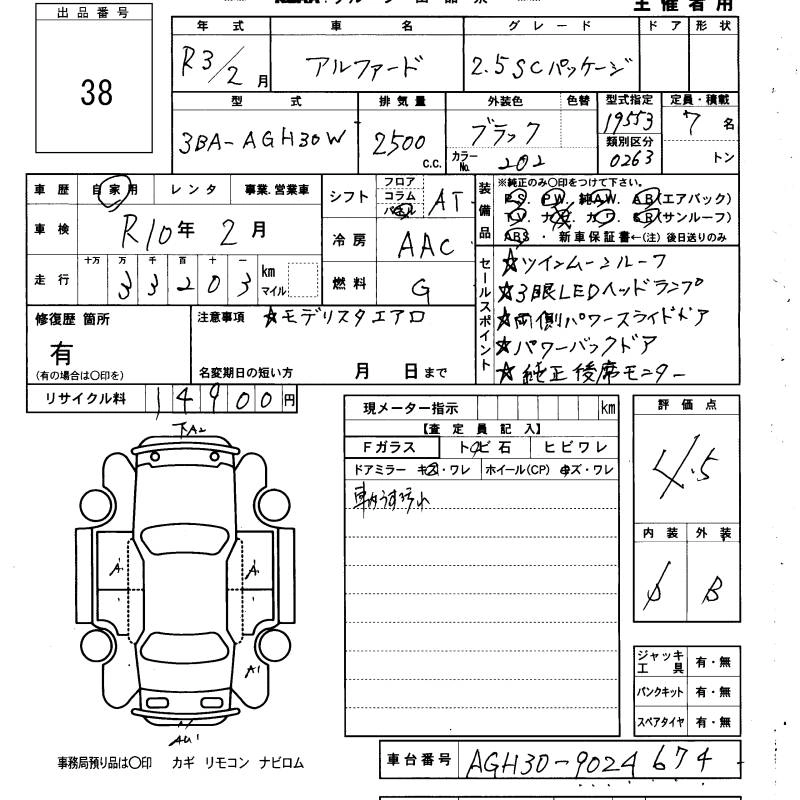 主催者用
出品番号
38
年式 車名 グレード ドア 形状
R3/2月 アルファード 2.5SCパッケージ
型式 排気量 外装色 色替 型式指定 定員・積載
3BA-AGH30W 2500 c.c. ブラック 19553 7名
カラーNo. 202 類別区分 0263 トン
車歴 自家用 レンタ 事業.営業車
シフト フロア コラム パネル AT
車検 R10年2月
冷房 AAC
走行 十万 万 千 百 十 一
33203 km マイル
燃料 G
装備品 ※純正のみ〇印をつけて下さい。
P.S. P.W. 純AW. A.B(エアバッグ)
T.V. ナビ カワ S.R(サンルーフ)
ABS ・ 新車保証書←(注) 後日送りのみ
セールスポイント
☆ツインムーンルーフ
☆3眼LEDヘッドランプ
☆両側パワースライドドア
★パワーバックドア
★純正後席モニター
修復歴 箇所
有
(有の場合は〇印を)
注意事項 ☆モデリスタエアロ
名変期日の短い方 月 日まで
リサイクル料 14900円
現メーター指示 km
【査定員記入】
Fガラス トビ石 ヒビワレ
ドアミラー キズ・ワレ ホイール(CP) キズ・ワレ
評価点
4.5
内装 外装
B
下A2
A'
A'
A'
AU'
ジャッキ工具 有・無
パンクキット 有・無
スペアタイヤ 有・無
事務局預り品は〇印 カギ リモコン ナビロム
車台番号 AGH30-9024674